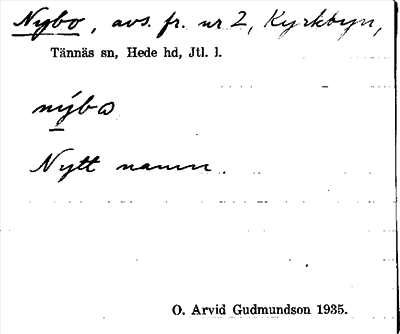 Nybo, avs. fr. nr 2, Kyrkbyn,
Tännäs sn, Hede hd, Jtl. l.
nýbω
Nytt namn.
O. Arvid Gudmundson 1935.